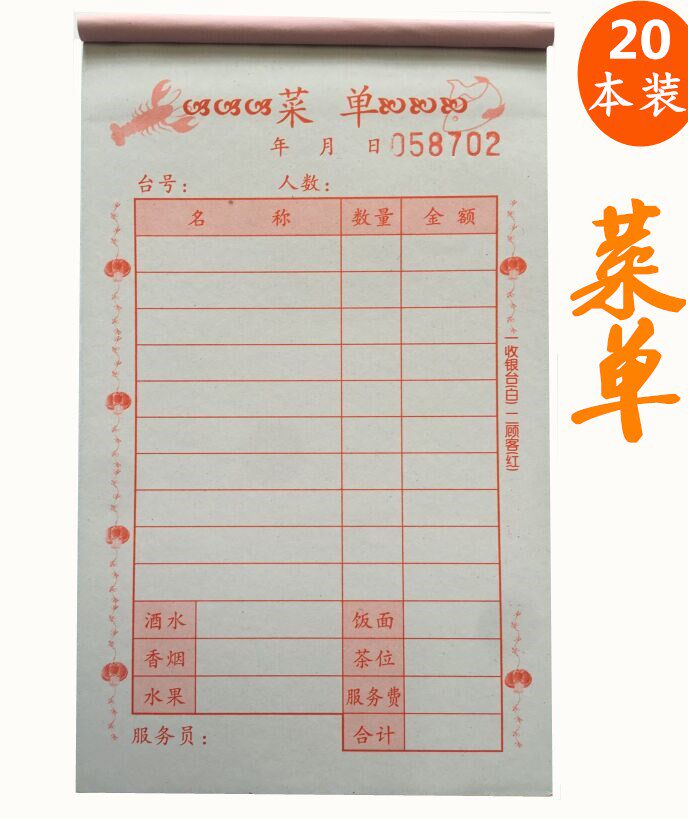 20
本装
菜单
菜 单
年 月 日 058702
台号： 人数：
名 称 数量 金 额
一收银台(白) 二顾客(红)
酒水 饭面
香烟 茶位
水果 服务费
服务员： 合计